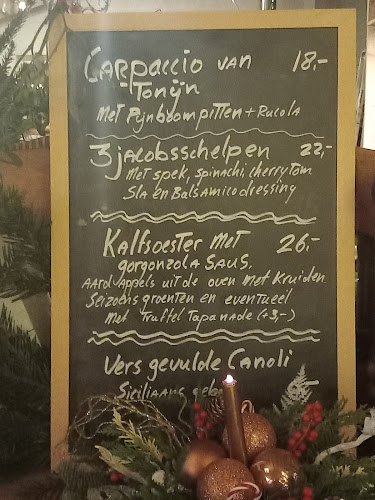 Carpaccio van 18,-
Tonijn
Met Pijnboompitten + Rucola
3 jacobsschelpen 22,-
Met spek, spinach, cherrytom
Sla en Balsamico dressing
Kalfsoester met 26,-
gorgonzola saus.
Aardappels uit de oven met Kruiden
Seizoens groenten en eventueel
Met Truffel Tapanade (+3,-)
Vers gevulde Canoli
Siciliaans